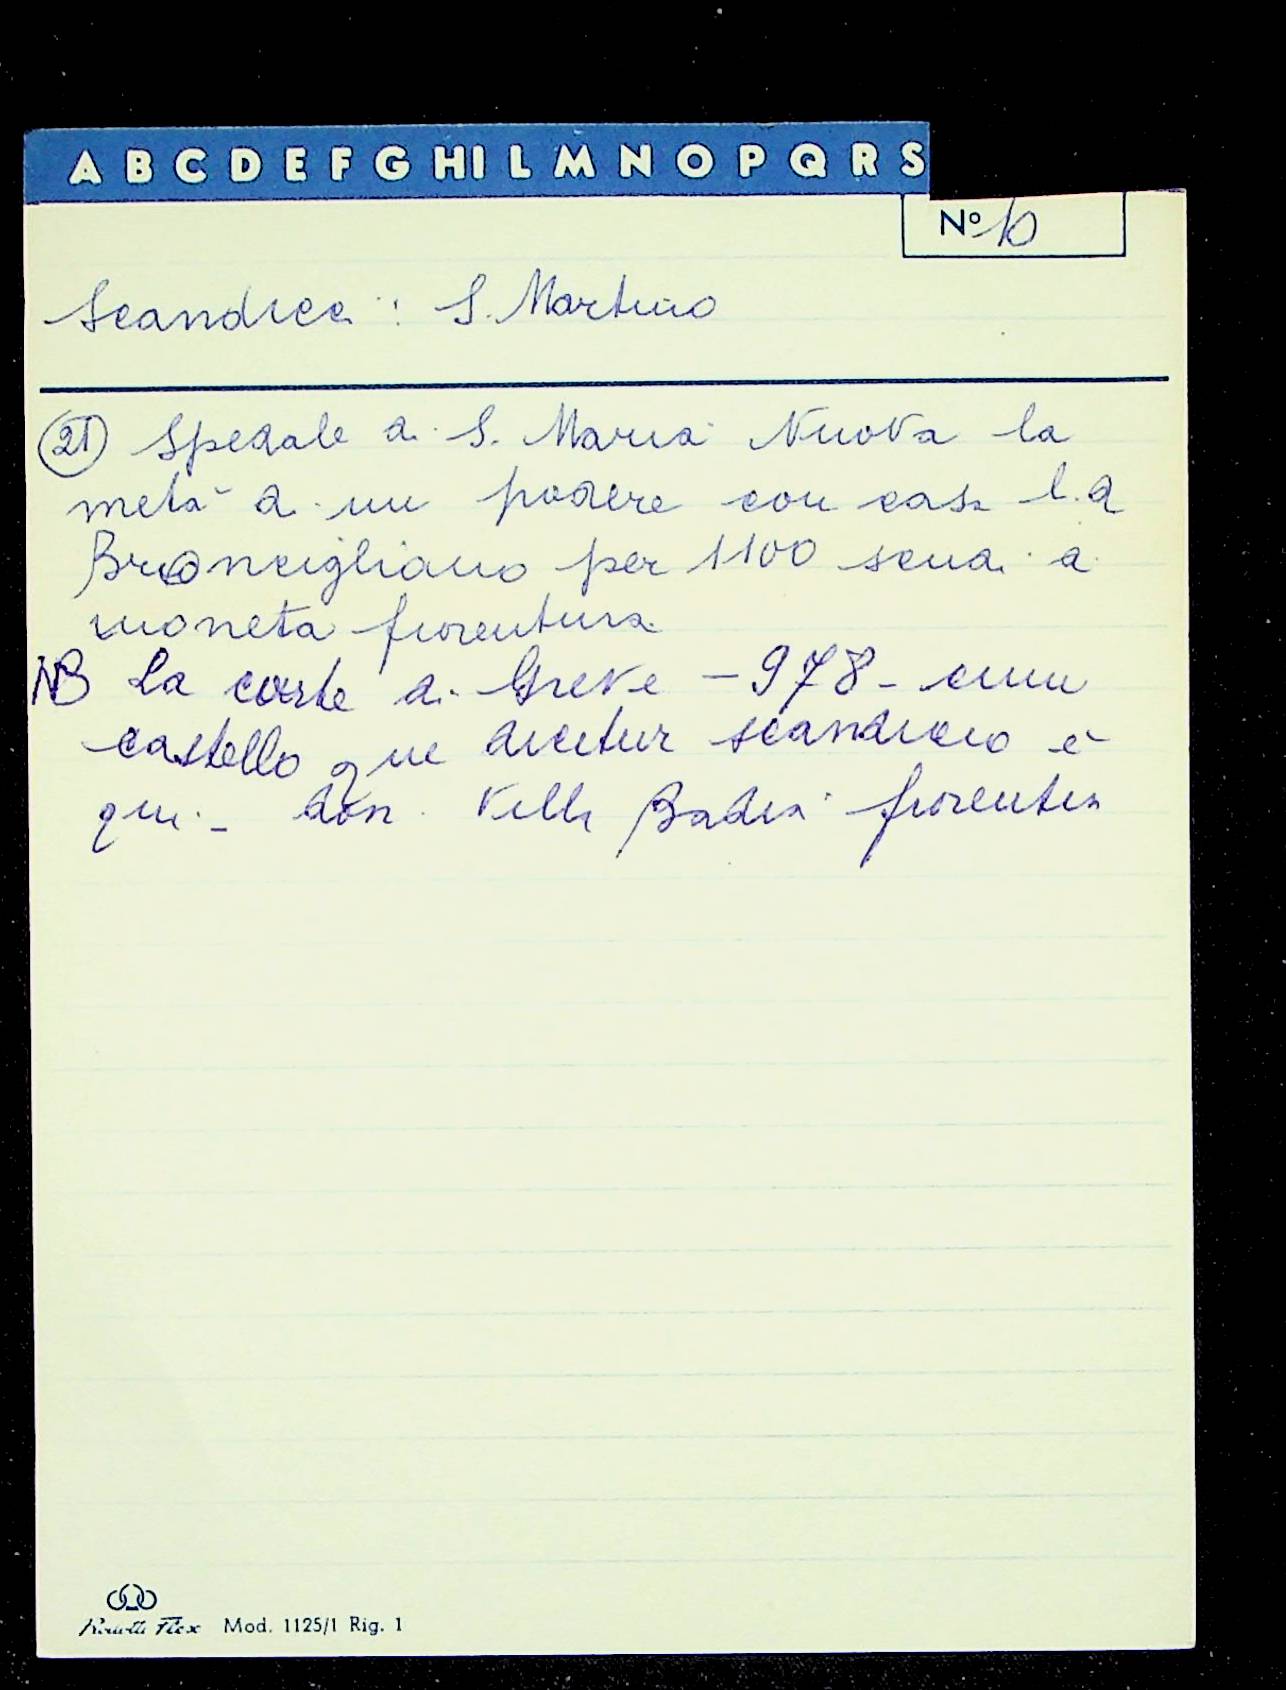 A B C D E F G HI L M N O P Q R S
Nº 10
Scandicci: S. Martino
(21) Spedale di S. Maria Nuova la
metà di un podere con casa l.d
Bronciglíano per 1100 scudi di
moneta fiorentina
NB La corte di Greve - 978 - cum
castello que dicitur scandicio è
qui - don. Willa Badia fiorentina
Mod. 1125/1 Rig. 1